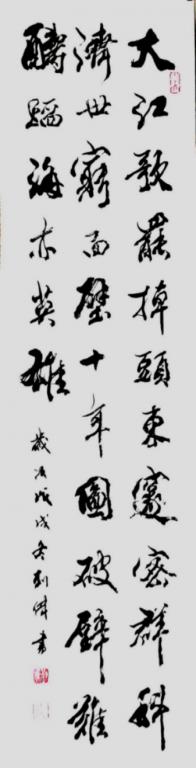 大江歌罷掉頭東邃密群科
濟世窮面壁十年圖破壁難
醻蹈海亦英雄
歲次戊戌冬刘偉書